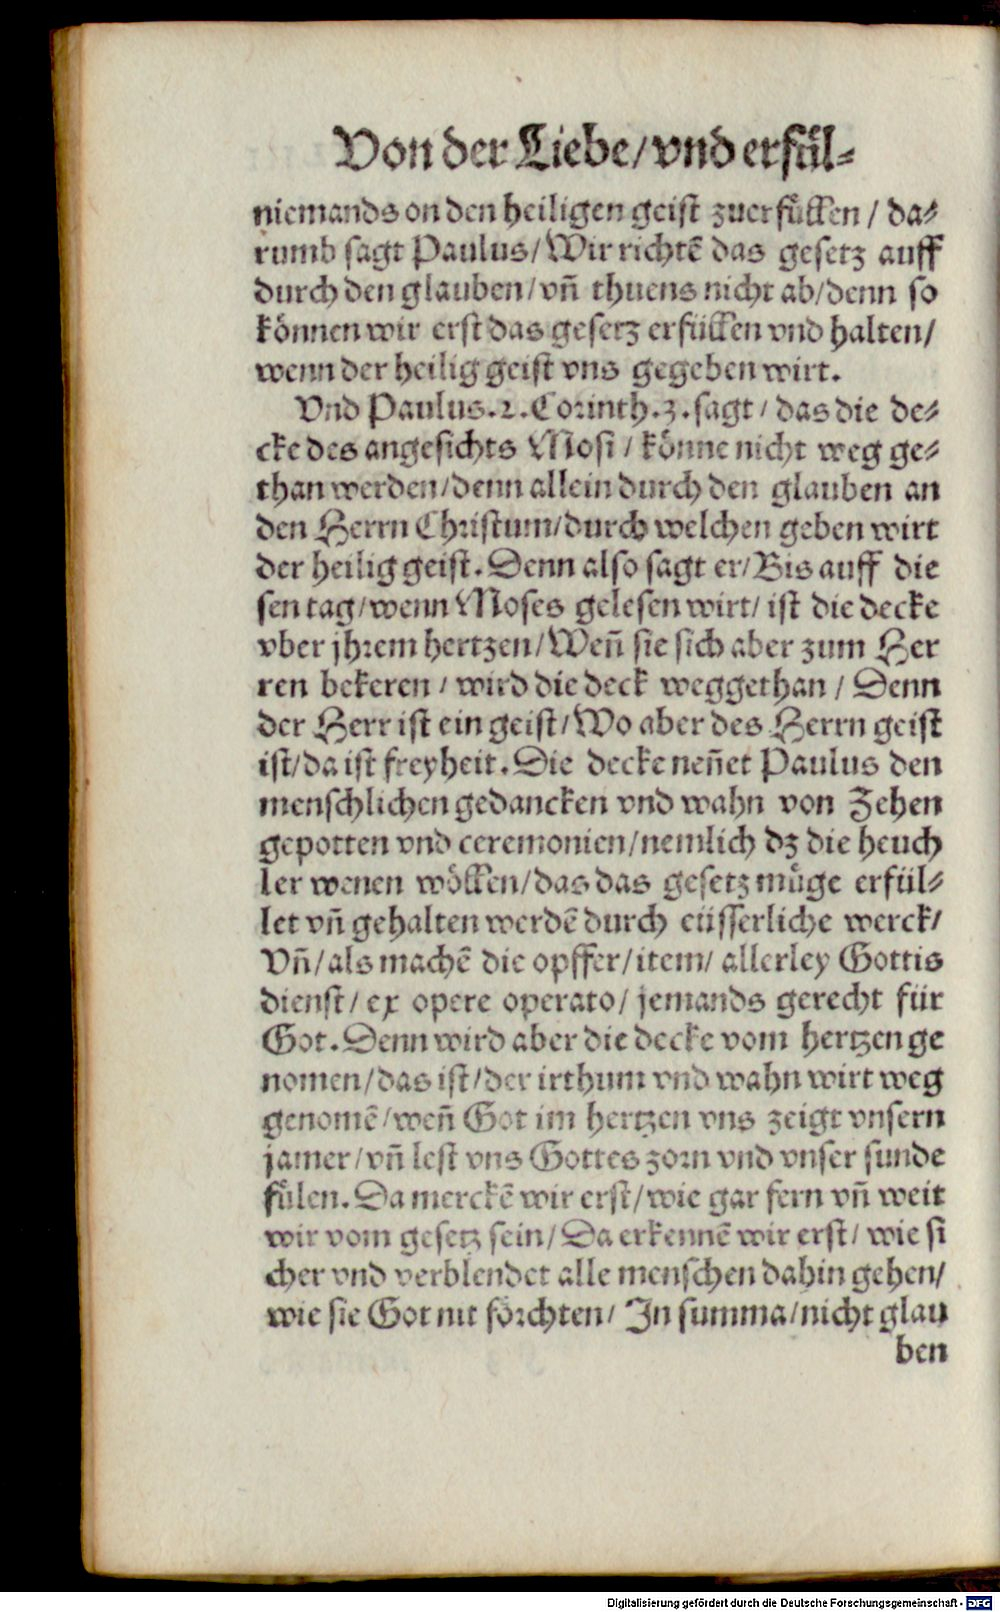 Von der Liebe/ vnd erfül-
niemands on den heiligen geist zuerfüllen / da-
rumb sagt Paulus/ Wir richtē das gesetz auff
durch den glauben/ vñ thuens nicht ab/ denn so
können wir erst das gesetz erfüllen vnd halten/
wenn der heilig geist vns gegeben wirt.
Vnd Paulus. 2. Corinth. 3. sagt / das die de-
cke des angesichts Mosi / könne nicht weg ge-
than werden/ denn allein durch den glauben an
den Herrn Christum/ durch welchen geben wirt
der heilig geist. Denn also sagt er/ Bis auff die
sen tag/ wenn Moses gelesen wirt/ ist die decke
vber jhrem hertzen/ Weñ sie sich aber zum Her
ren bekeren / wird die deck weggethan / Denn
der Herr ist ein geist/ Wo aber des Herrn geist
ist/ da ist freyheit. Die decke neñet Paulus den
menschlichen gedancken vnd wahn von Zehen
gepotten vnd ceremonien/ nemlich dz die heuch
ler wenen wöllen/ das das gesetz müge erfül-
let vñ gehalten werdē durch eüsserliche werck/
Vñ/ als machē die opffer/ item/ allerley Gottis
dienst/ ex opere operato/ jemands gerecht für
Got. Denn wird aber die decke vom hertzen ge
nomen/ das ist/ der irthum vnd wahn wirt weg
genomē/ weñ Got im hertzen vns zeigt vnsern
jamer/ vñ lest vns Gottes zorn vnd vnser sunde
fülen. Da merckē wir erst/ wie gar fern vñ weit
wir vom gesetz sein/ Da erkennē wir erst/ wie si
cher vnd verblendet alle menschen dahin gehen/
wie sie Got nit förchten/ In summa/ nicht glau
ben
Digitalisierung gefördert durch die Deutsche Forschungsgemeinschaft - DFG